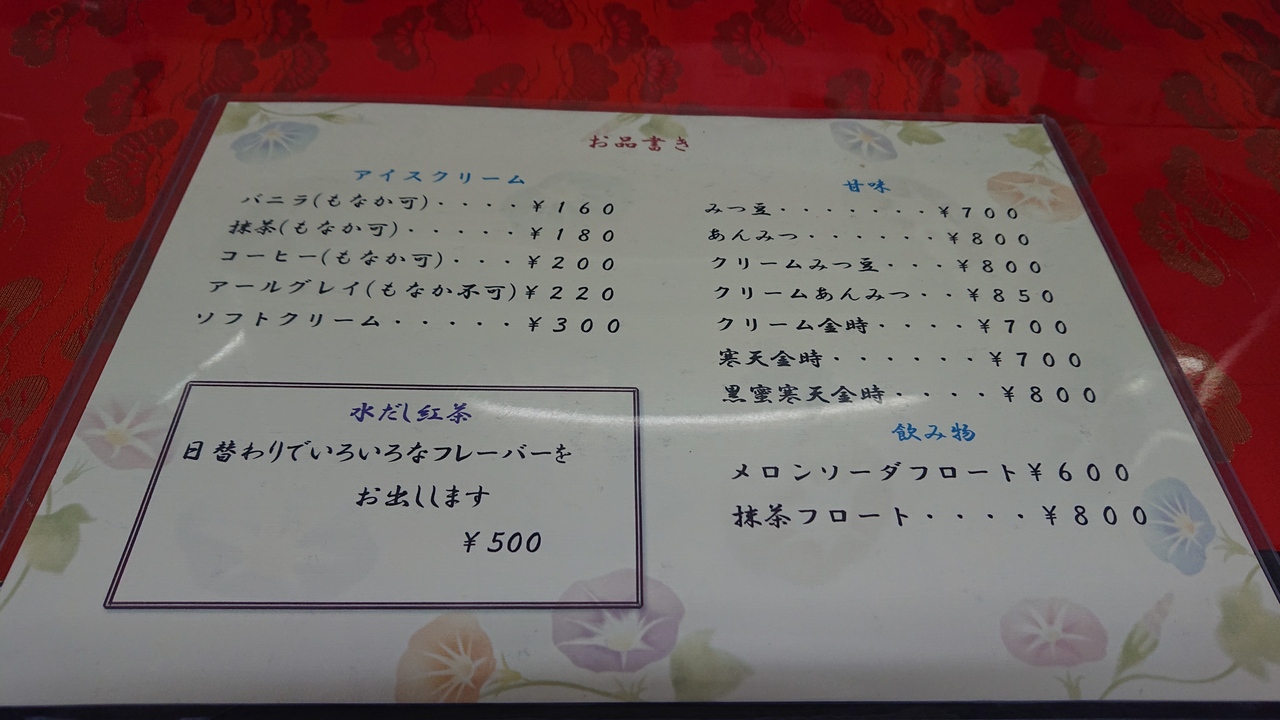 お品書き
アイスクリーム
バニラ(もなか可)・・・・¥160
抹茶(もなか可)・・・・・¥180
コーヒー(もなか可)・・・¥200
アールグレイ(もなか不可)¥220
ソフトクリーム・・・・・¥300
水だし紅茶
日替わりでいろいろなフレーバーを
お出しします
¥500
甘味
みつ豆・・・・・・・¥700
あんみつ・・・・・・¥800
クリームみつ豆・・・¥800
クリームあんみつ・・¥850
クリーム金時・・・・¥700
寒天金時・・・・・・¥700
黒蜜寒天金時・・・・¥800
飲み物
メロンソーダフロート¥600
抹茶フロート・・・・¥800